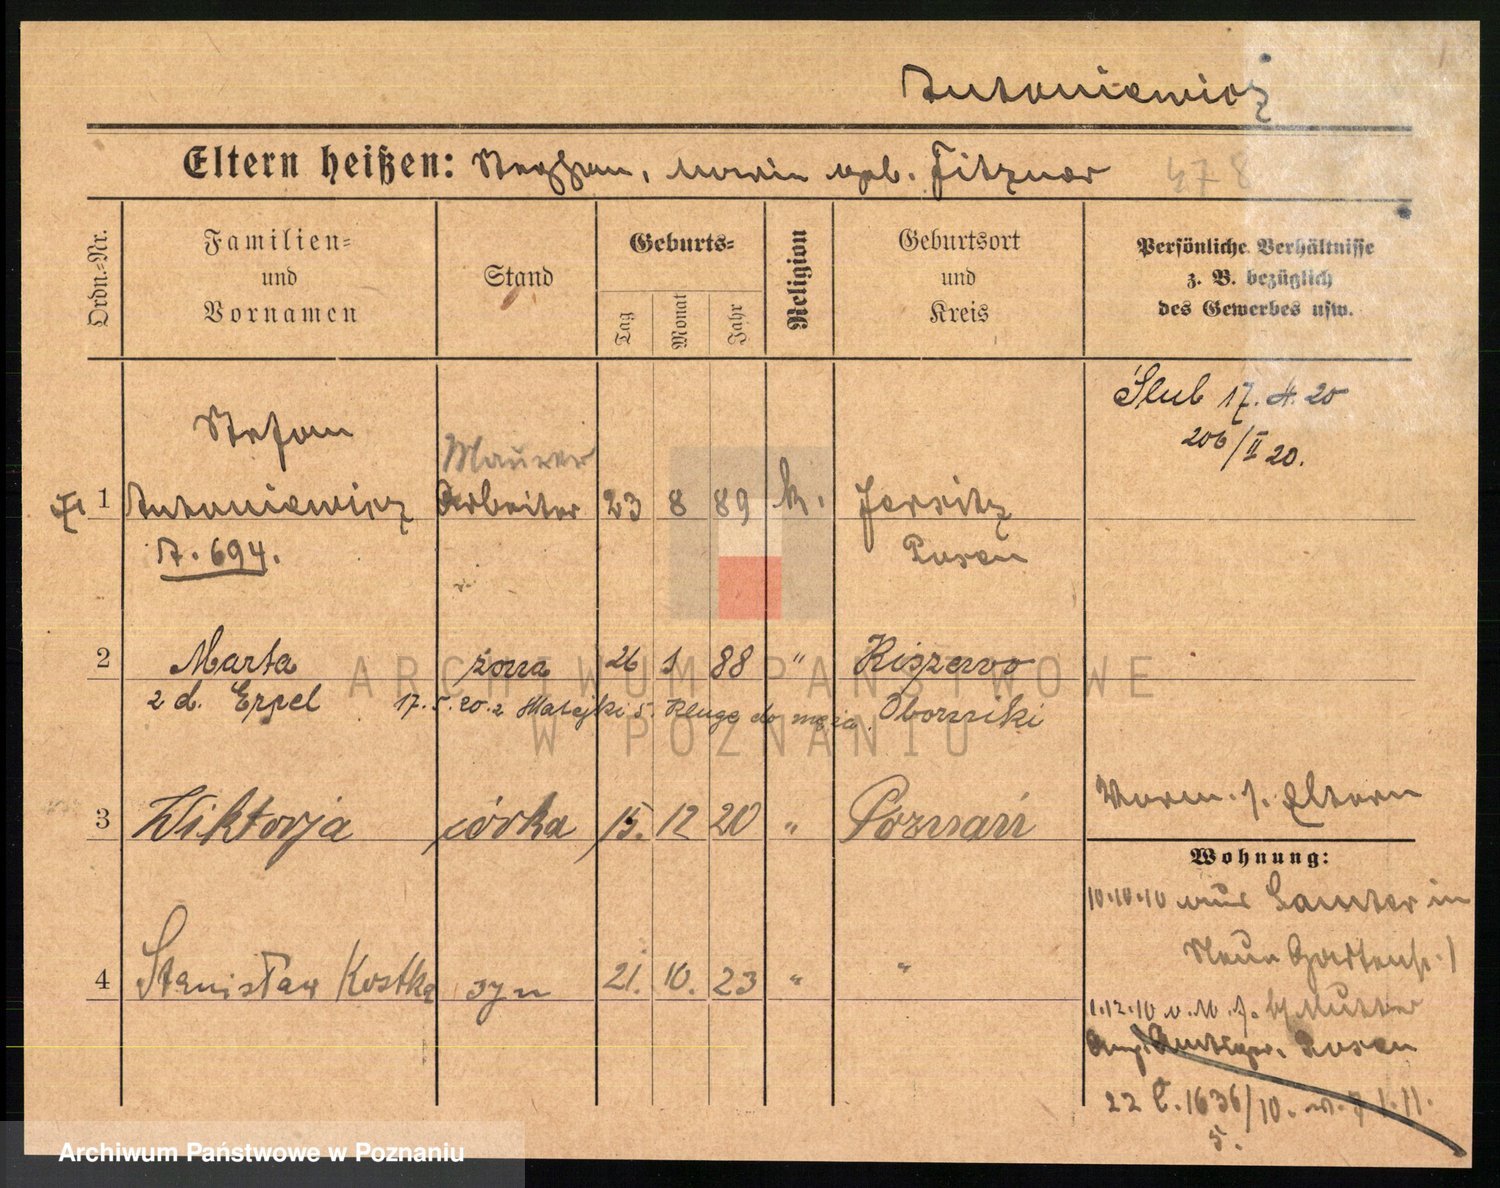 Antoniewicz
Eltern heißen: Stephan, Maria geb. Fitzner
478
Ordn.-Nr.
Familien-
und
Vornamen
Stand
Geburts-
Tag
Monat
Jahr
Religion
Geburtsort
und
Kreis
Persönliche Verhältnisse
z. B. bezüglich
des Gewerbes usw.
Ślub 17. 4. 20
206/II 20.
Stefan
Maurer
1 Antoniewicz Arbeiter 23 8 89 k. Jersitz
A. 694.
Posen
2 Marta żona 26 1 88 " Kiszewo
z d. Erpel 17. 5. 20. z Matejki 5. Kluge do męża. Oborniki
3 Wiktorja córka 15. 12 20 " Poznań
Vorm. s. Eltern
Wohnung:
10.10.10 aus Samter in
Neue Gartenstr. 1
4 Stanisław Kostka syn 21. 10. 23 " "
1.12.10 b/ Mutter
Amtsger. Posen
22 C. 1636/10. 1.11.
5.
ARCHIWUM PAŃSTWOWE
W POZNANIU
Archiwum Państwowe w Poznaniu